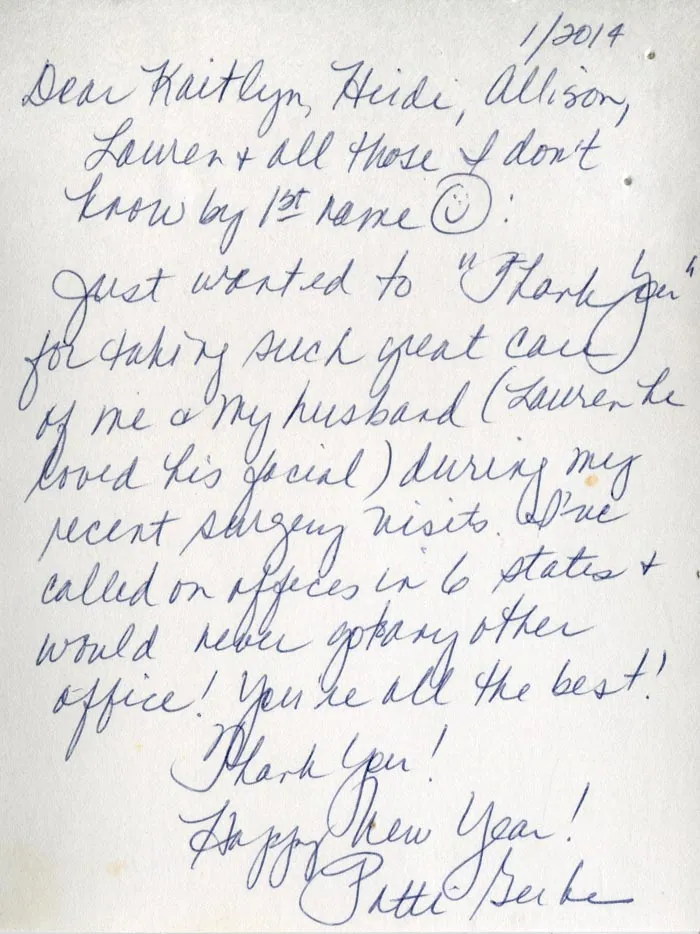 1/2014
Dear Kaitlyn, Heidi, Allison,
Lauren + all those I don't
know by 1st name ☺:
Just wanted to "Thank You"
for taking such great care
of me & my husband (Lauren he
loved his facial) during my
recent surgery visits. I've
called on offices in 6 states +
would never go to any other
office! You're all the best!
Thank You!
Happy New Year!
Patti